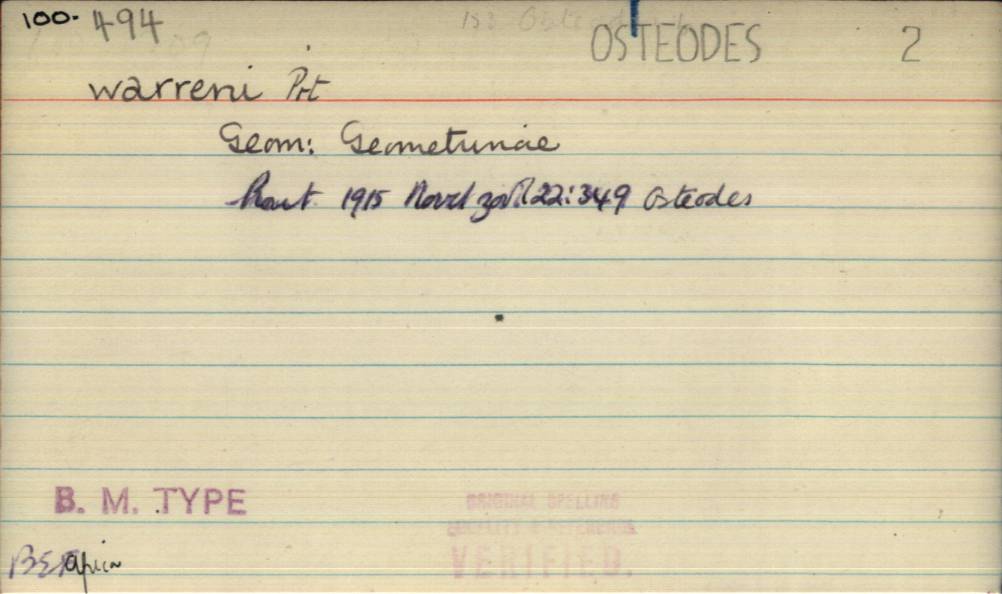 100. 494
OSTEODES 2
warreni Prt
Geom: Geometrinae
Prout 1915 Novit zool 22:349 Osteodes
B. M. TYPE
ORIGINAL SPELLING
LOCALITY & REFERENCE
VERIFIED.
BEAfrica